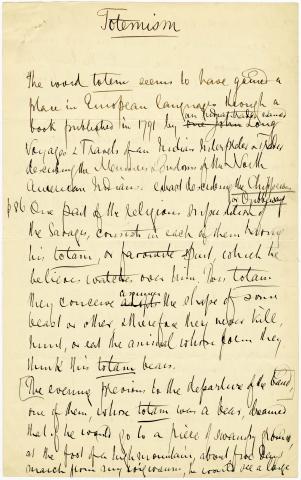 Totemism
The word totem seems to have gained a
place in European languages through a
book published in 1791 by one John Long
an Indian trader, named
Voyages & Travels of an Indian Interpreter & Trader
describing the Manners & Customs of the North
American Indians. about describing the Chippewas
or Ojibways
p 86 One part of the religious superstition of
the Savages, consists in each of them having
his totam, or favourite spirit, which he
believes watches over him. This totam
they conceive assumes the shape of some
beast or other, & therefore they never kill,
hunt, or eat the animal whose form they
think this totam bears.
[The evening previous to the departure of the band
one of them, whose totam was a bear, dreamed
that if he would go to a piece of swampy ground
at the foot of a high mountain, about five days
march from my wigwaum, he would see a large